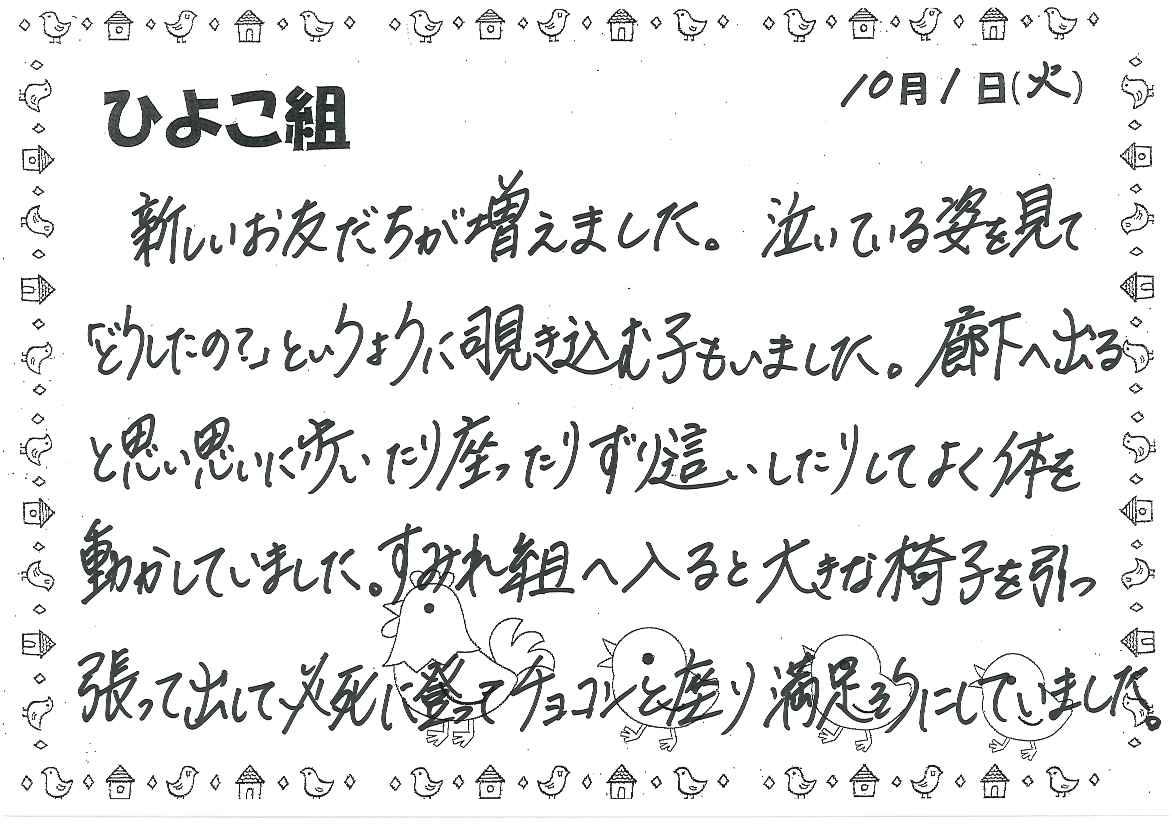 ひよこ組
10月1日(火)
新しいお友だちが増えました。泣いている姿を見て
「どうしたの?」というように覗き込む子もいました。廊下へ出る
と思い思いに歩いたり座ったりずり這いしたりしてよく体を
動かしていました。すみれ組へ入ると大きな椅子を引っ
張って出して必死に登ってチョコンと座り満足そうにしていました。